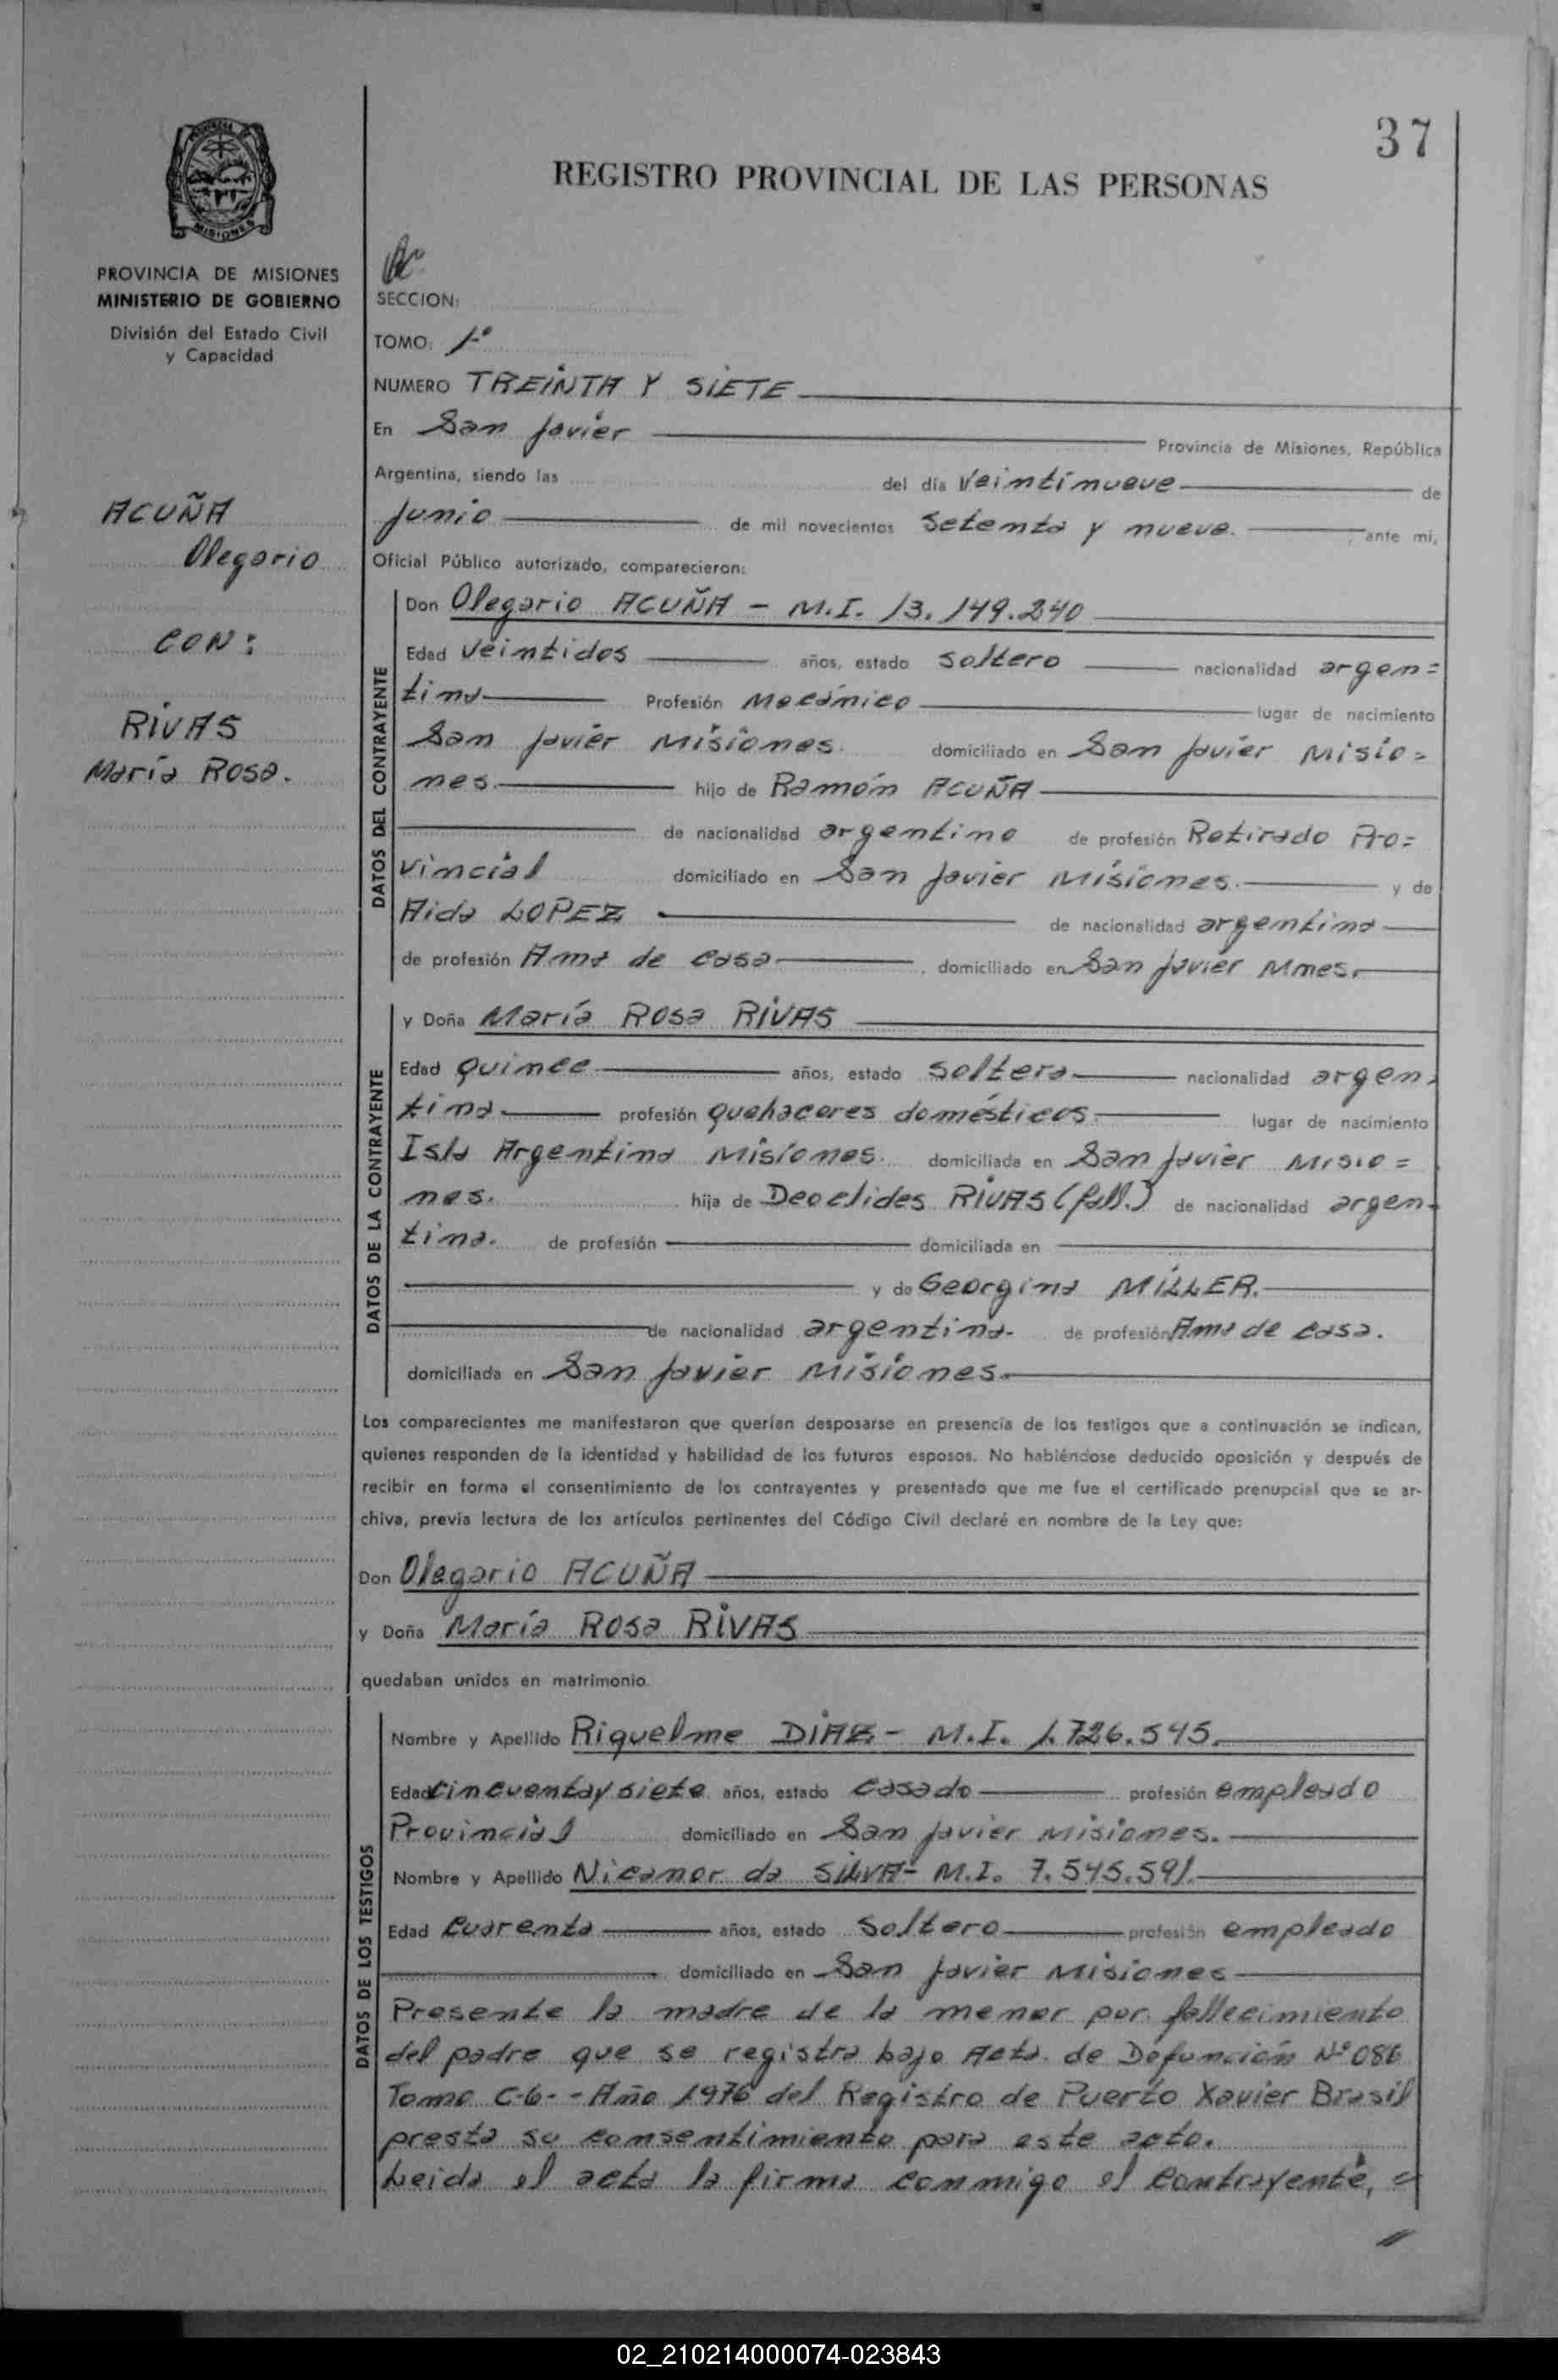 37
REGISTRO PROVINCIAL DE LAS PERSONAS
PROVINCIA DE MISIONES
MINISTERIO DE GOBIERNO
División del Estado Civil
y Capacidad
SECCION:
TOMO: 1º
NUMERO TREINTA Y SIETE
En San Javier Provincia de Misiones, República
Argentina, siendo las del día veintinueve de
Junio de mil novecientos setenta y nueve. , ante mi,
Oficial Público autorizado, comparecieron:
ACUÑA
Olegario
CON:
RIVAS
María Rosa.
DATOS DEL CONTRAYENTE
Don Olegario ACUÑA - M.I. 13.149.240
Edad veintidos años, estado soltero nacionalidad argen=
tina Profesión Mecánico lugar de nacimiento
San Javier Misiones. domiciliado en San Javier Misio=
nes. hijo de Ramón ACUÑA
de nacionalidad argentino de profesión Retirado Pro=
vincial domiciliado en San Javier Misiones. y de
Aida LOPEZ de nacionalidad argentina
de profesión Ama de casa , domiciliado en San Javier Mnes.
DATOS DE LA CONTRAYENTE
y Doña María Rosa RIVAS
Edad quince años, estado soltera nacionalidad argen-
tina profesión quehaceres domésticos lugar de nacimiento
Isla Argentina Misiones. domiciliada en San Javier Misio=
nes. hija de Deoclides RIVAS (fall.) de nacionalidad argen-
tina. de profesión domiciliada en
y de Georgina MILLER.
de nacionalidad argentina. de profesión Ama de casa.
domiciliada en San Javier Misiones.
Los comparecientes me manifestaron que querían desposarse en presencia de los testigos que a continuación se indican,
quienes responden de la identidad y habilidad de los futuros esposos. No habiéndose deducido oposición y después de
recibir en forma el consentimiento de los contrayentes y presentado que me fue el certificado prenupcial que se ar-
chiva, previa lectura de los artículos pertinentes del Código Civil declaré en nombre de la Ley que:
Don Olegario ACUÑA
y Doña María Rosa RIVAS
quedaban unidos en matrimonio.
DATOS DE LOS TESTIGOS
Nombre y Apellido Riquelme DIAZ - M.I. 1.726.545.
Edad cincuenta y siete años, estado casado profesión empleado
Provincial domiciliado en San Javier Misiones.
Nombre y Apellido Nicanor da SILVA - M.I. 7.545.591.
Edad cuarenta años, estado soltero profesión empleado
domiciliado en San Javier Misiones
Presente la madre de la menor por fallecimiento
del padre que se registra bajo Acta. de Defunción Nº 086
Tomo C-6- - Año 1976 del Registro de Puerto Xavier Brasil
presta su consentimiento para este acto.
Leida el acta la firma conmigo el contrayente,
02_210214000074-023843